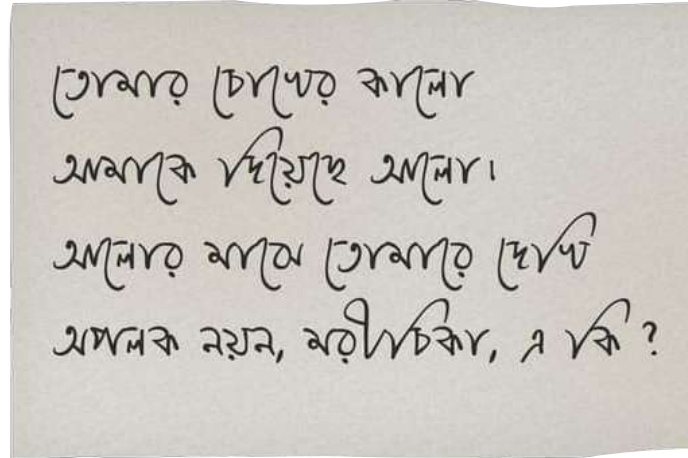 তোমার চোখের কালো
আমাকে দিয়েছে আলো।
আলোর মাঝে তোমারে দেখি
অপলক নয়ন, মরীচিকা, এ কি ?